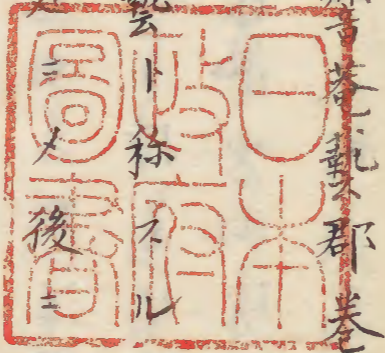 菴範郡巻
藝ト称スル
ミメ後ニ
日本
政府
圖書